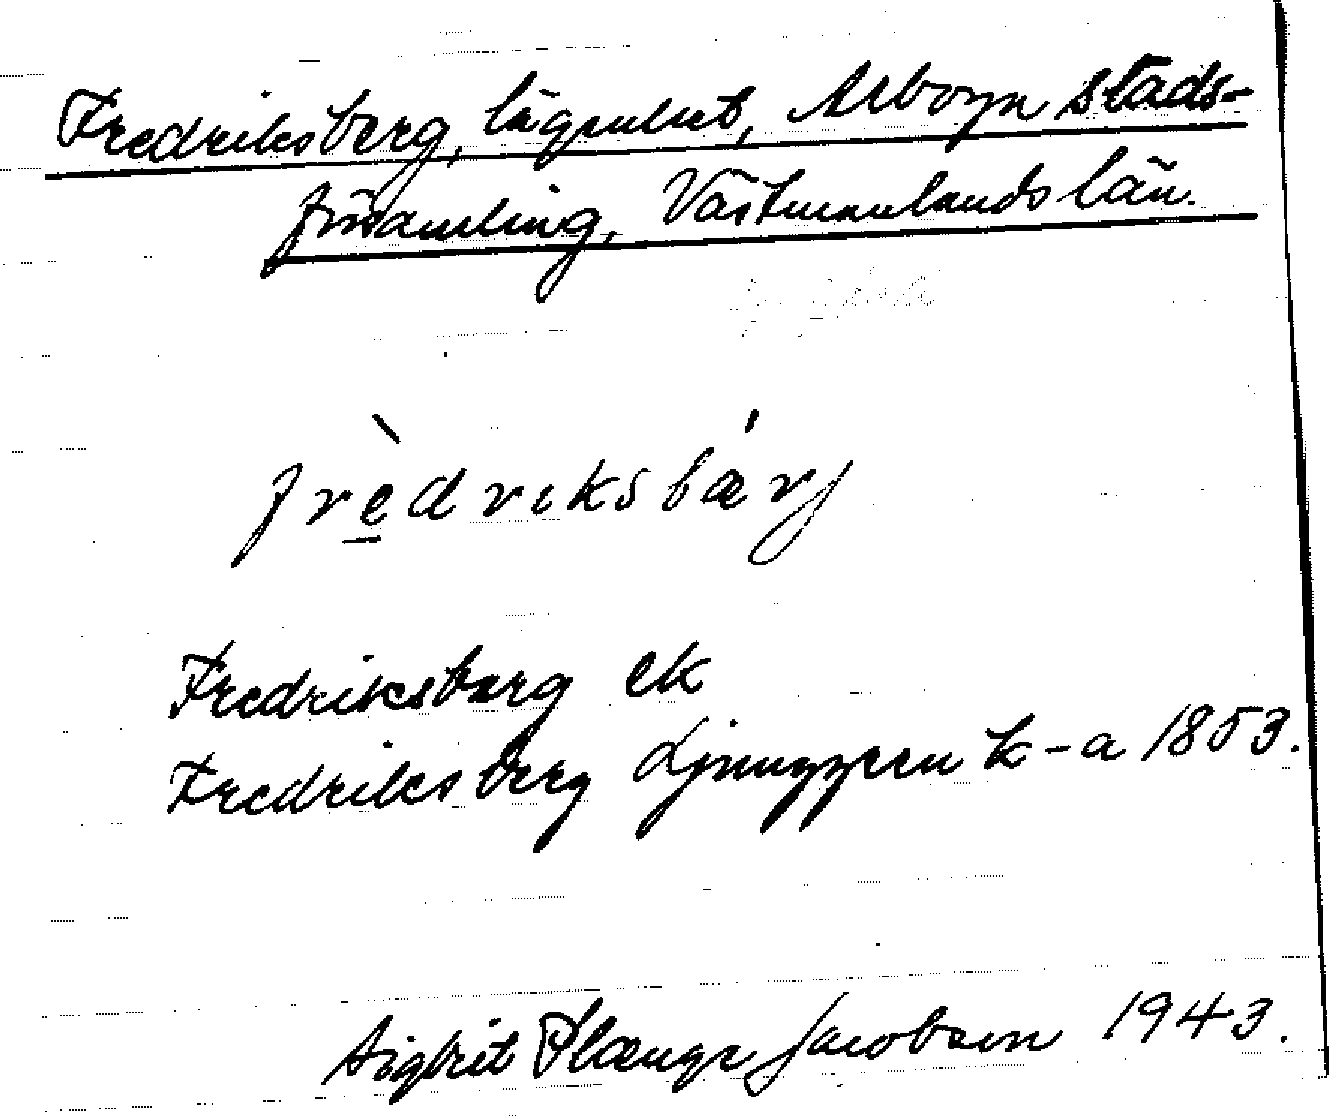 Fredriksberg, lägenhet, Arboga stads-
församling, Västmanlands län.
frèdriksbárj
Fredriksberg ek
Fredriksberg Ljunggren k-a 1853.
Sigbrit Plænge Jacobson 1943.